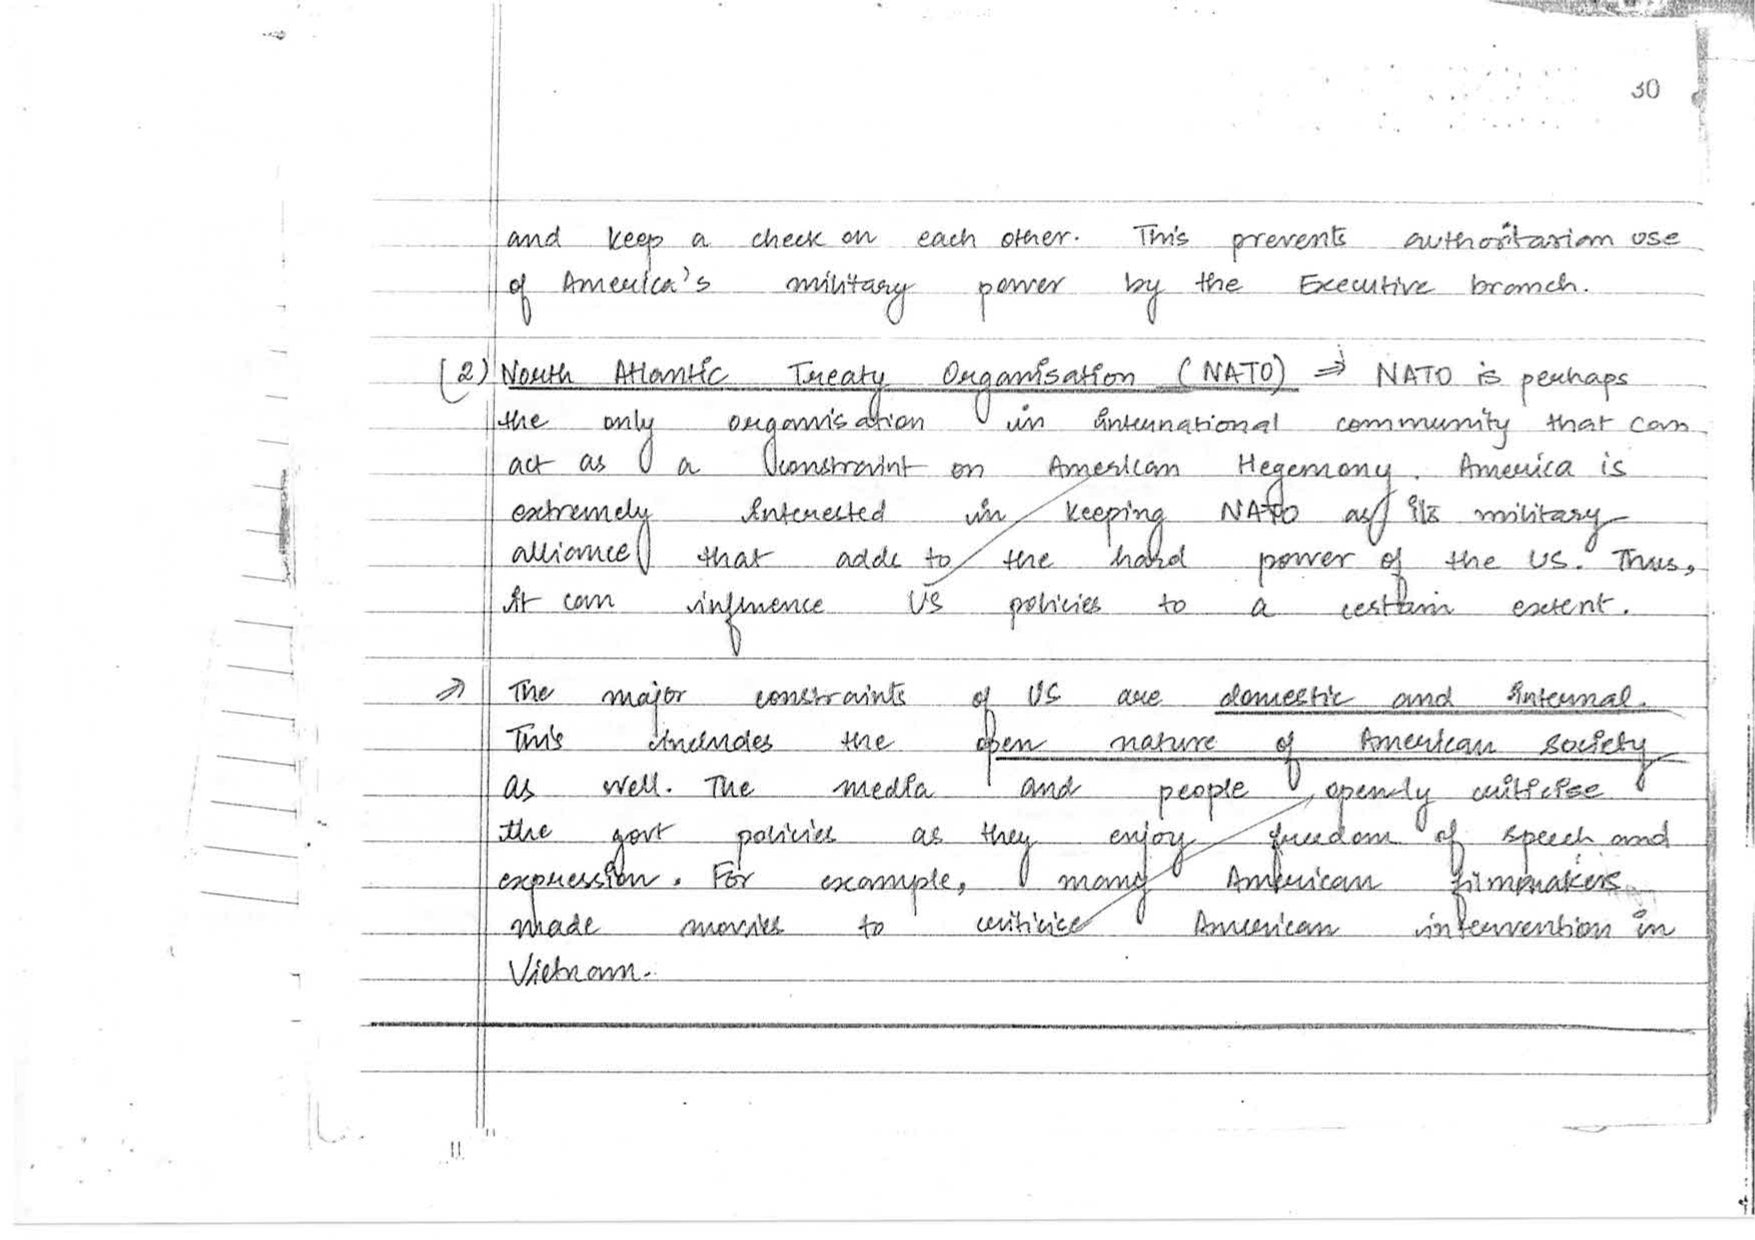 30
and keep a check on each other. This prevents authoritarian use
of America's military power by the Executive branch.
(2) North Atlantic Treaty Organisation (NATO) ⇒ NATO is perhaps
the only organisation in international community that can
act as a constraint on American Hegemony. America is
extremely interested in keeping NATO as its military
alliance that adds to the hard power of the US. Thus,
it can influence US policies to a certain extent.
⇒ The major constraints of US are domestic and internal.
This includes the open nature of American society
as well. The media and people openly criticise
the govt policies as they enjoy freedom of speech and
expression. For example, many American filmmakers
made movies to criticice American intervention in
Vietnam.